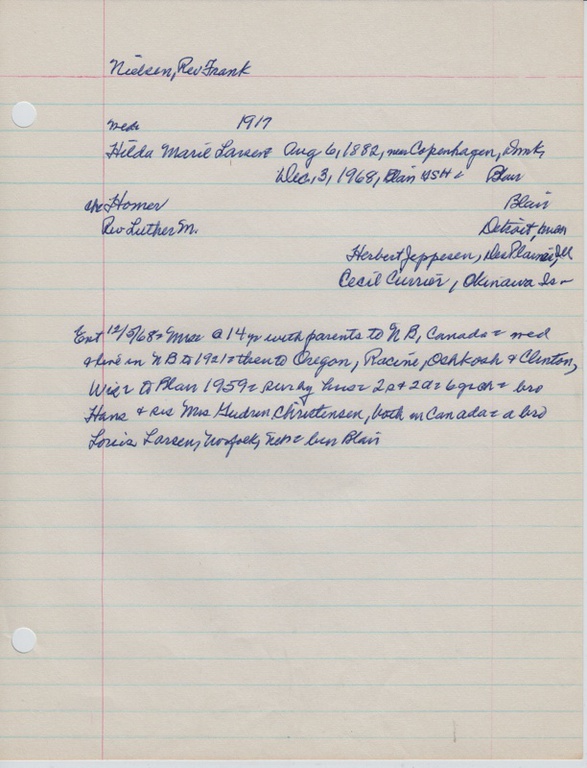 Nielsen, Rev Frank
wed 1917
Hilda Marie Larsen Aug 6, 1882, near Copenhagen, Dmk,
Dec, 3, 1968, Blair Blair
Homer Blair
Rev Luther M. Detroit,
Herbert Jeppesen, Des Plaines, Ill
Cecil Currier, Okinawa Is
Ent 12/5/68 @ 14 yr with parents to N B, Canada = wed
& live in N B to 1921 = then to Oregon, Racine, Oshkosh & Clinton,
Wisc to Blair 1959 = surv by hus = 2s & 2d = 6 grch = bro
Hans & sis Mrs Gudrun Christensen, both in Canada = a bro
Louis Larsen, Norfolk, Neb = bur Blair